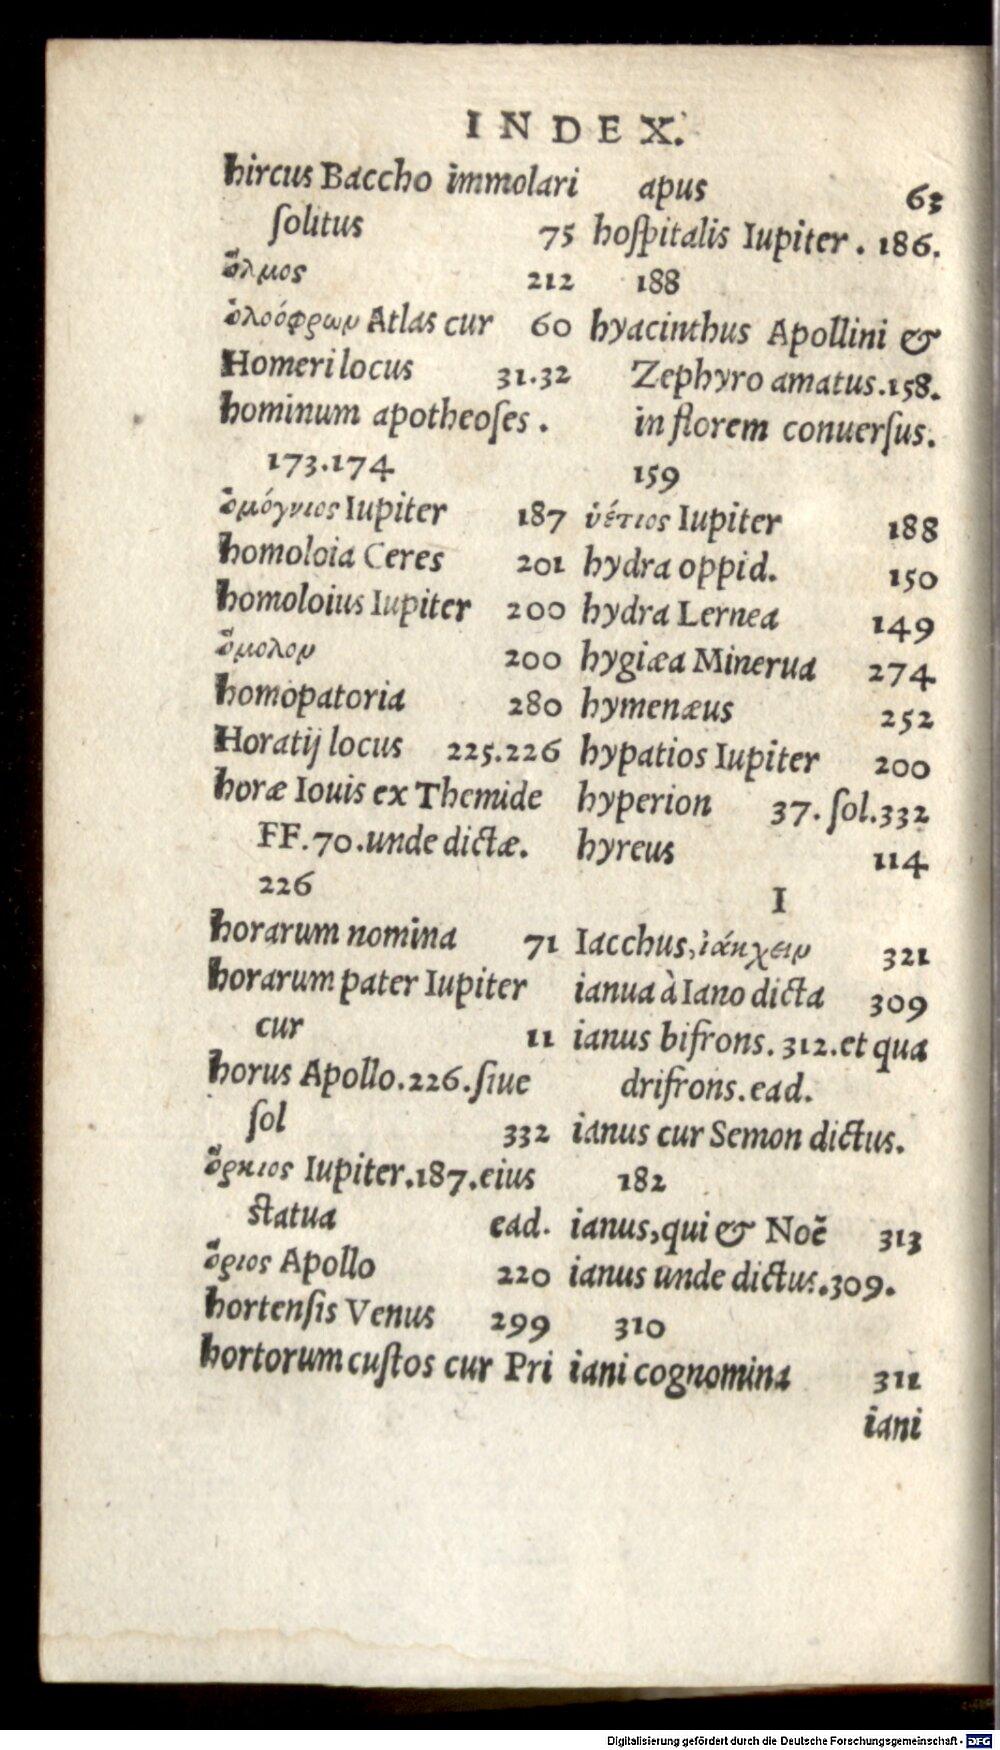 INDEX.
hircus Baccho immolari
ſolitus 75
ὅλμος 212
ὀλοόφρων Atlas cur 60
Homeri locus 31.32
hominum apotheoſes.
173.174
ὁμόγνιος Iupiter 187
homoloia Ceres 201
homoloius Iupiter 200
ὅμολον 200
homopatoria 280
Horatij locus 225.226
horæ Iouis ex Themide
FF.70.unde dictæ.
226
horarum nomina 71
horarum pater Iupiter
cur 11
horus Apollo.226.ſiue
ſol 332
ὅρκιος Iupiter.187.eius
ſtatua ead.
ὅριος Apollo 220
hortenſis Venus 299
hortorum cuſtos cur Pri
apus 63
hoſpitalis Iupiter. 186.
188
hyacinthus Apollini &
Zephyro amatus.158.
in florem conuerſus.
159
ὑέτιος Iupiter 188
hydra oppid. 150
hydra Lernea 149
hygiæa Minerua 274
hymenæus 252
hypatios Iupiter 200
hyperion 37. ſol.332
hyreus 114
I
Iacchus,ἰάκχειν 321
ianua à Iano dicta 309
ianus bifrons. 312.et qua
drifrons.ead.
ianus cur Semon dictus.
182
ianus,qui & Noẽ 313
ianus unde dictus.309.
310
iani cognomina 311
iani
Digitalisierung gefördert durch die Deutsche Forschungsgemeinschaft - DFG